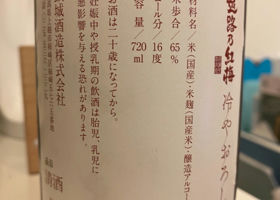 冷やおろし
米(国産)・米麹(国産米)・醸造アルコー
歩合/65%
ール分/16度
容量/720ml
お酒は二十歳になってから。
妊娠中や授乳期の飲酒は胎児、乳児に
悪影響を与える恐れがあります。
城酒造株式会社
清酒